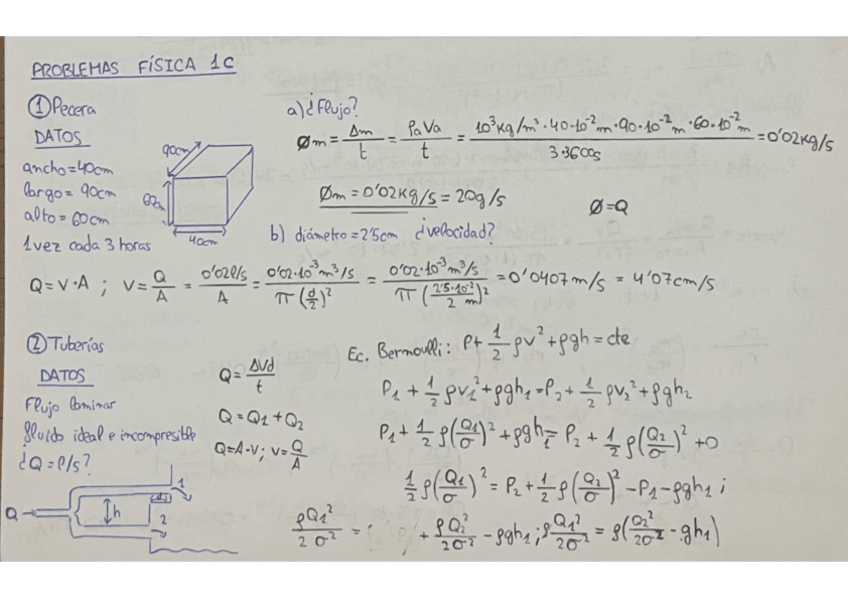 PROBLEMAS FÍSICA 1C
① Pecera
DATOS
ancho = 40cm
largo = 90cm
alto = 60cm
1 vez cada 3 horas
90cm
60cm
40cm
a) ¿Flujo?
Øm = Δm/t = ρaVa/t = 10³kg/m³·40·10⁻²m·90·10⁻²m·60·10⁻²m / 3·3600s = 0'02kg/s
Øm = 0'02kg/s = 20g/s
Ø = Q
b) diámetro = 2'5cm ¿velocidad?
Q = V·A ; V = Q/A = 0'02l/s / A = 0'02·10⁻³m³/s / π(d/2)² = 0'02·10⁻³m³/s / π(2'5·10⁻²/2 m)² = 0'0407m/s = 4'07cm/s
② Tuberías
DATOS
Flujo laminar
fluido ideal e incompresible
¿Q = l/s?
Q
h
1
2
Q = ΔVd/t
Q = Q1 + Q2
Q = A·V ; V = Q/A
Ec. Bernoulli: P + 1/2 ρv² + ρgh = cte
P1 + 1/2 ρv1² + ρgh1 = P2 + 1/2 ρv2² + ρgh2
P1 + 1/2 ρ(Q1/σ)² + ρgh1 = P2 + 1/2 ρ(Q2/σ)² + 0
1/2 ρ(Q1/σ)² = P2 + 1/2 ρ(Q2/σ)² - P1 - ρgh1 ;
ρQ1²/2σ² = + ρQ2²/2σ² - ρgh1 ; ρQ1²/2σ² = ρ(Q2²/2σ² - gh1)